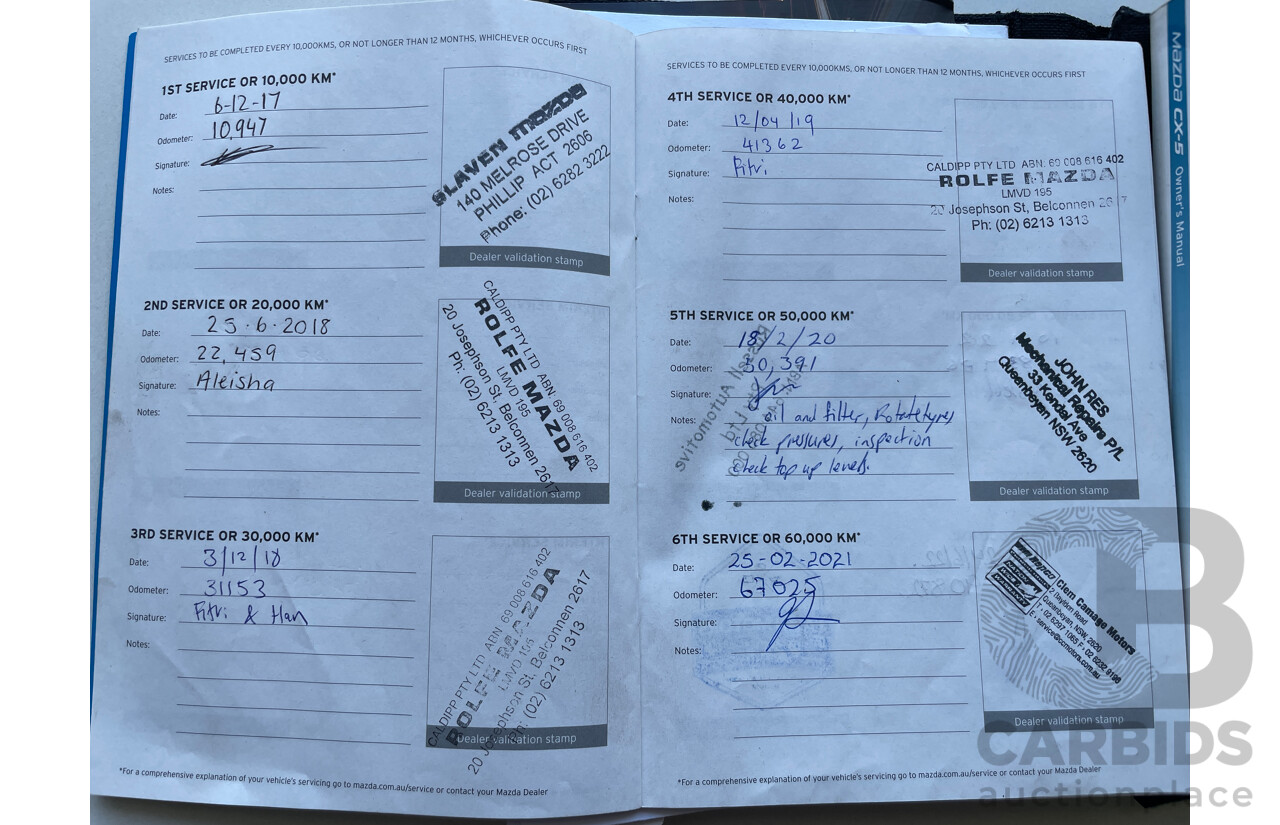 SERVICES TO BE COMPLETED EVERY 10,000KMS, OR NOT LONGER THAN 12 MONTHS, WHICHEVER OCCURS FIRST
1ST SERVICE OR 10,000 KM*
Date: 6-12-17
Odometer: 10,947
Signature:
Notes:
SLAVEN mazda
140 MELROSE DRIVE
PHILLIP ACT 2606
Phone: (02) 6282 3222
Dealer validation stamp
2ND SERVICE OR 20,000 KM*
Date: 25.6.2018
Odometer: 22,459
Signature: Aleisha
Notes:
CALDIPP PTY LTD ABN: 69 008 616 402
ROLFE MAZDA
LMVD 195
20 Josephson St, Belconnen 2617
Ph: (02) 6213 1313
Dealer validation stamp
3RD SERVICE OR 30,000 KM*
Date: 3/12/18
Odometer: 31153
Signature: Fitri & Han
Notes:
CALDIPP PTY LTD ABN: 69 008 616 402
ROLFE MAZDA
LMVD 195
20 Josephson St, Belconnen 2617
Ph: (02) 6213 1313
Dealer validation stamp
*For a comprehensive explanation of your vehicle's servicing go to mazda.com.au/service or contact your Mazda Dealer
SERVICES TO BE COMPLETED EVERY 10,000KMS, OR NOT LONGER THAN 12 MONTHS, WHICHEVER OCCURS FIRST
4TH SERVICE OR 40,000 KM*
Date: 12/04/19
Odometer: 41362
Signature: Fitri
Notes:
CALDIPP PTY LTD ABN: 69 008 616 402
ROLFE MAZDA
LMVD 195
20 Josephson St, Belconnen 26 7
Ph: (02) 6213 1313
Dealer validation stamp
5TH SERVICE OR 50,000 KM*
Date: 18/2/20
Odometer: 50,391
Signature:
Notes: oil and filter, Rotate tyres
check pressures, inspection
check top up levels.
JOHN RES
Mechanical Repairs P/L
33 Kendal Ave
Queanbeyan NSW 2620
Dealer validation stamp
6TH SERVICE OR 60,000 KM*
Date: 25-02-2021
Odometer: 67025
Signature:
Notes:
Clem Camage Motors
Queanbeyan, NSW, 2620
T. 02 6297 1065 F. 02 6232 9196
E. service@ccmotors.com.au
Dealer validation stamp
*For a comprehensive explanation of your vehicle's servicing go to mazda.com.au/service or contact your Mazda Dealer
mazda CX-5 Owner's Manual
CARBIDS
auctionplace